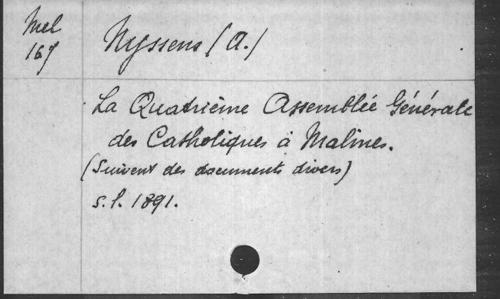 Mel
167
Nyssens (A.)
La Quatrième Assemblée Générale
des Catholiques à Malines.
(Suivent des documents divers)
s.l. 1891.